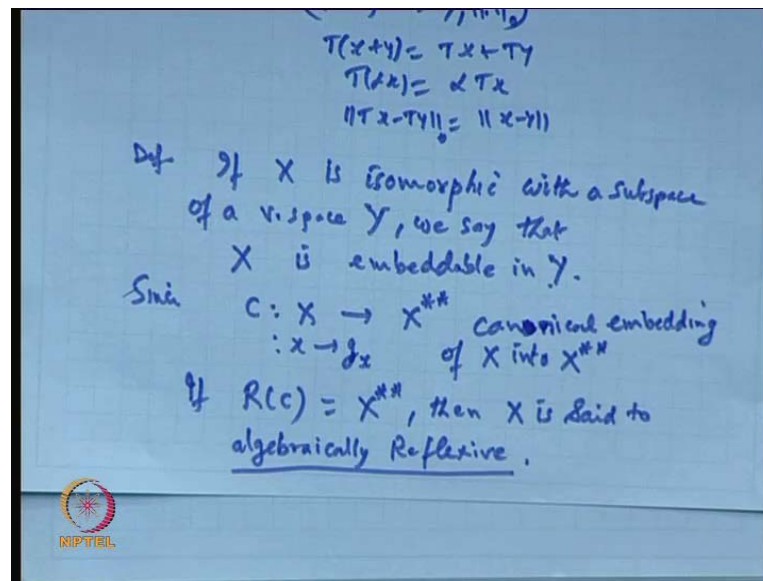 T(x+y) = Tx + Ty
T(αx) = α Tx
||Tx-Ty||₀ = ||x-y||
Def If X is isomorphic with a subspace
of a v. space Y, we say that
X is embeddable in Y.
Since C: X → X** canonical embedding
: x → gx of X into X**
If R(C) = X**, then X is said to
algebraically Reflexive.
NPTEL